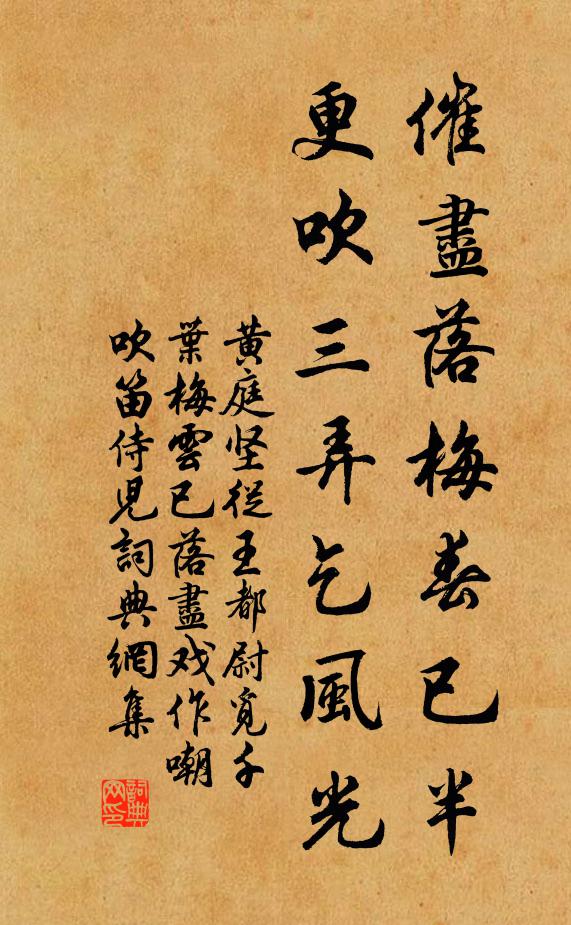 催盡落梅春已半
更吹三弄乞風光
黃庭坚從王都尉覓千
葉梅雲已落盡戏作嘲
吹笛侍児詞典網集
詞典
网印